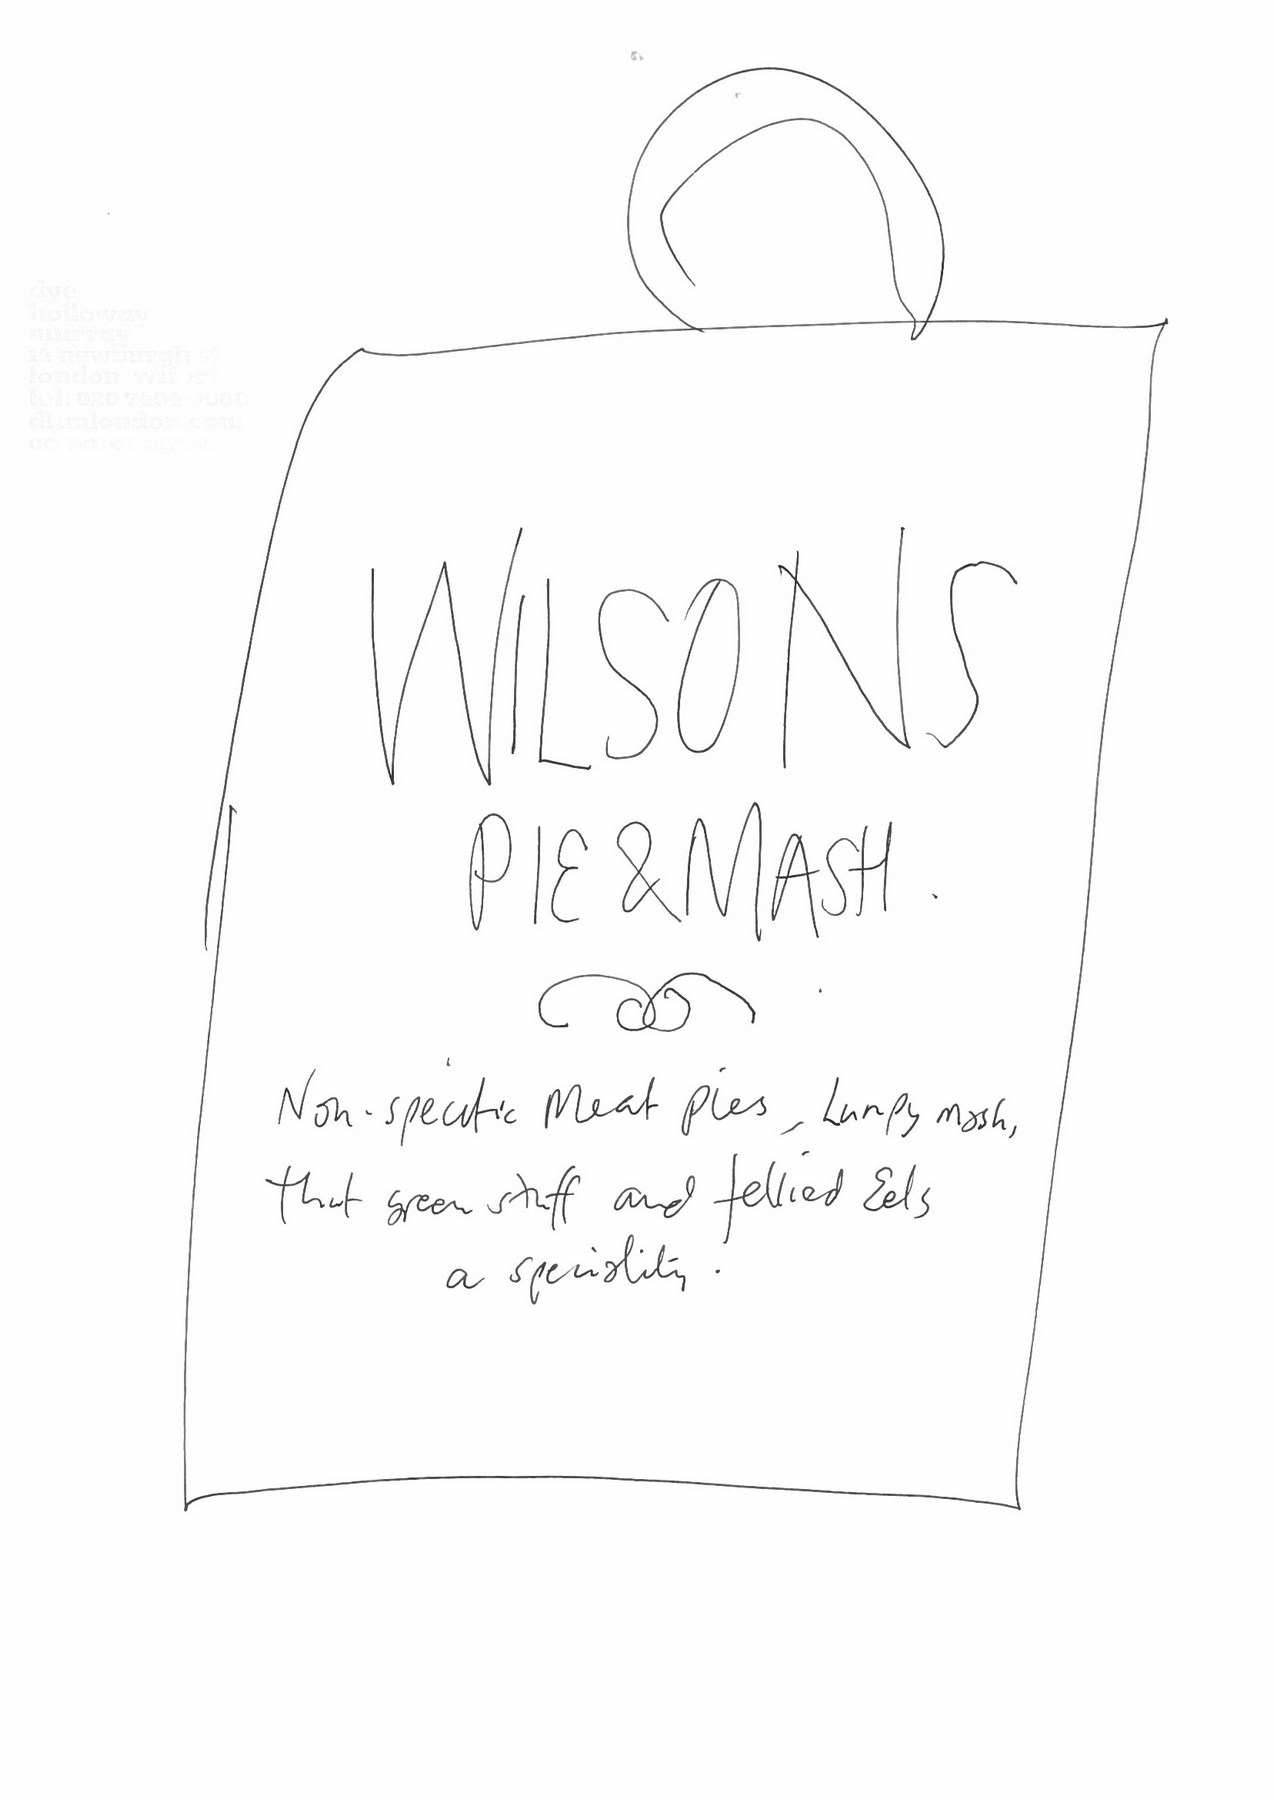 dye
holloway
murray
london
WILSONS
PIE & MASH.
Non-specific Meat pies, Lumpy mash,
that green stuff and Jellied Eels
a speciality.